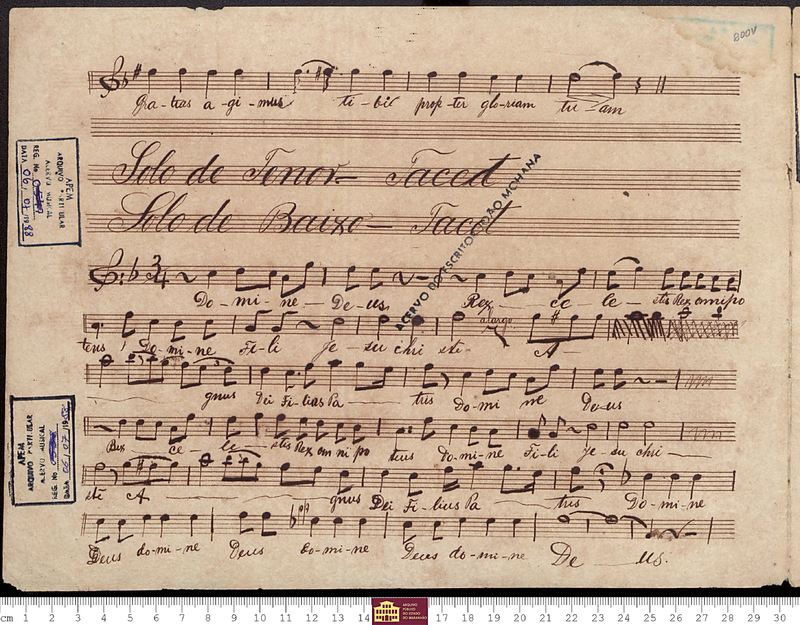 200V
Gra-tias a-gi-mus ti-bi prop-ter glo-riam tu-am
Solo de Tenor — Tacet
Solo de Baixo — Tacet
Do-mi-ne — De-us Rex ce-les-tis Rex omnipo
tens Do-mi-ne Fi-li Je-su chri ste A-
alargo
gnus Dei Fi-lius Pa-tus Do-mi ne De-us
Rex ce-le-stis Rex om ni po teus Do-mi-ne Fi-li Je-su chri-
sti A gnus Dei Fi-lius Pa-tus Do-mi-ne
Deus do-mi-ne Deus Do-mi-ne Deus do-mi-ne De us.
ACERVO DO ESCRITOR JOÃO MOHANA
APEM
ARQUIVO PARTITULAR
ACERVO MUSICAL
REG. No.
DATA 06/07/1988
APEM
ARQUIVO PARTITULAR
ACERVO MUSICAL
REG. No.
DATA 06/07/1988
cm 1 2 3 4 5 6 7 8 9 10 11 12 13 14 17 18 19 20 21 22 23 24 25 26 27 28 29 30
ARQUIVO
PÚBLICO
DO ESTADO
DO MARANHÃO